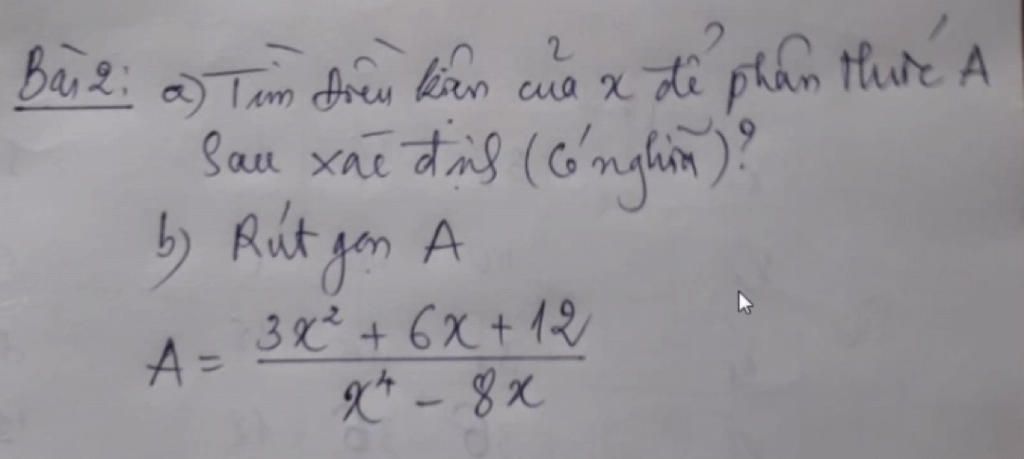 Bài 2: a) Tìm điều kiện của x để phân thức A
sau xác định (có nghĩa)?
b) Rút gọn A
A = \frac{3x² + 6x + 12}{x⁴ - 8x}